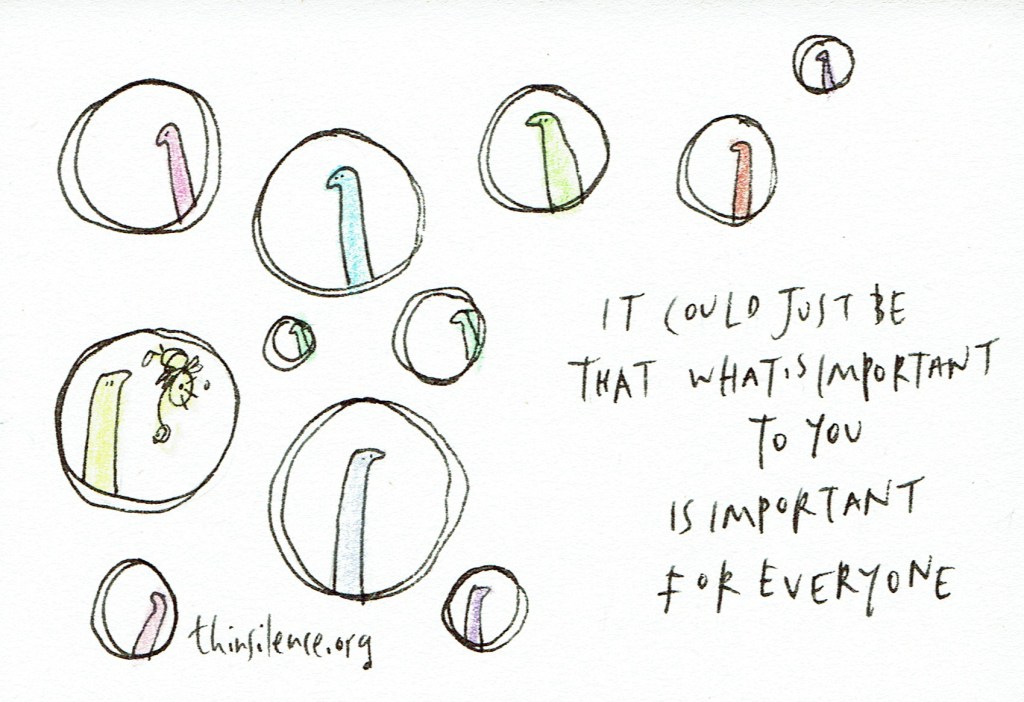 IT COULD JUST BE
THAT WHAT'S IMPORTANT
TO YOU
IS IMPORTANT
FOR EVERYONE
thinsilence.org